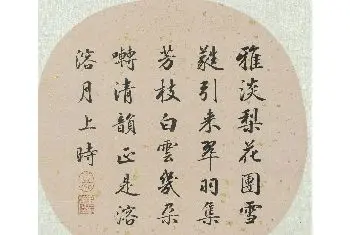 雅淡梨花團雪
蕤引来翠羽集
芳枝白雲幾朵
囀清韻正是溶
溶月上時